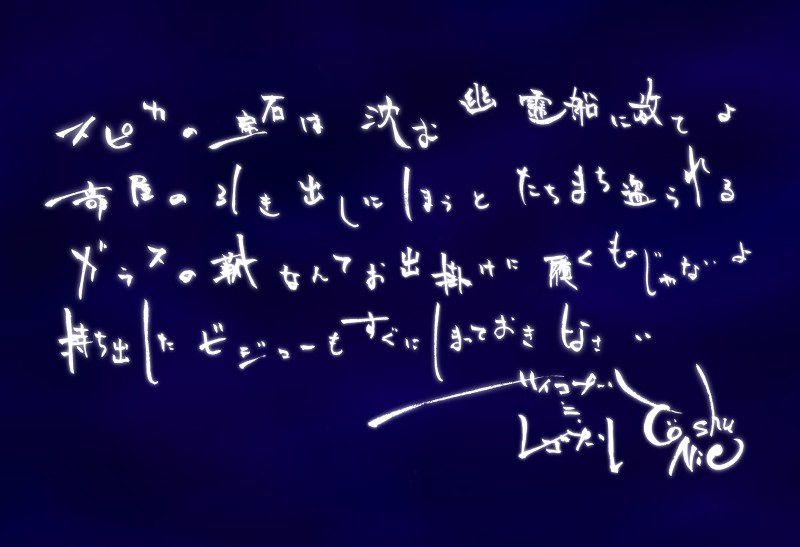 スピカの宝石は沈む幽霊船に放てよ
部屋の引き出しにしまうとたちまち盗られる
ガラスの靴なんてお出掛けに履くものじゃないよ
持ち出したビジューもすぐにしまっておきなさい
サイコプール
レゴプール
Cö shu Nie